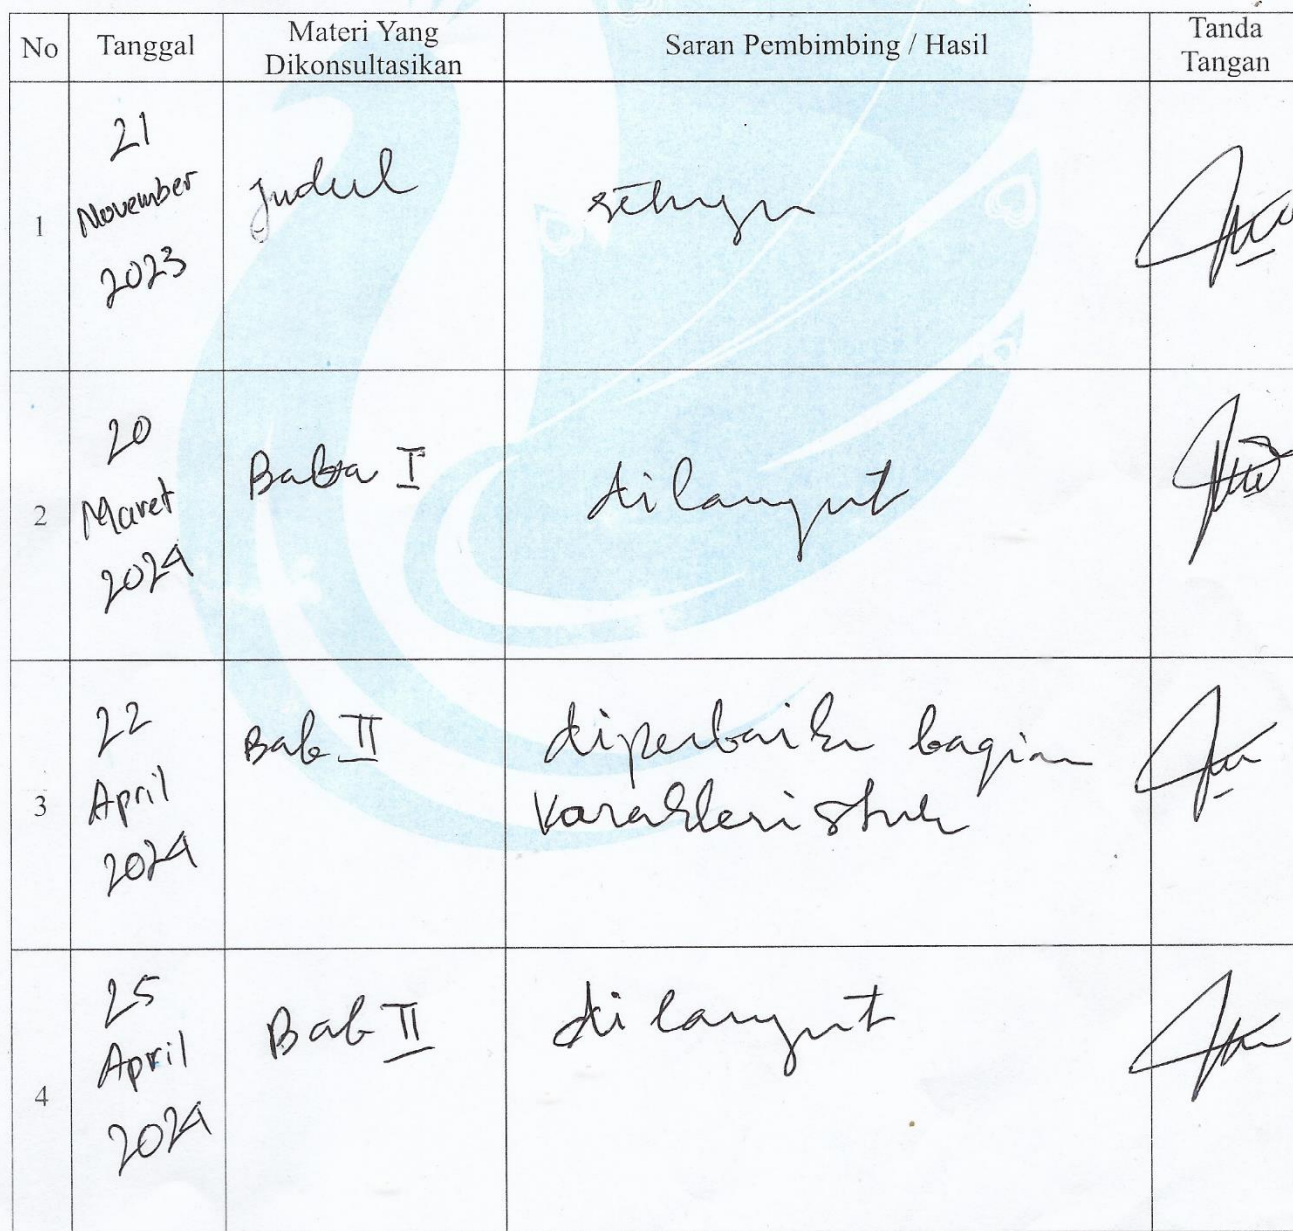 No Tanggal Materi Yang Dikonsultasikan Saran Pembimbing / Hasil Tanda Tangan
1
21
November
2023
Judul
2
20
Maret
2024
Bab I
dilanjut
3
22
April
2024
Bab II
diperbaiki bagian
karakteristik
4
25
April
2024
Bab II
dilanjut